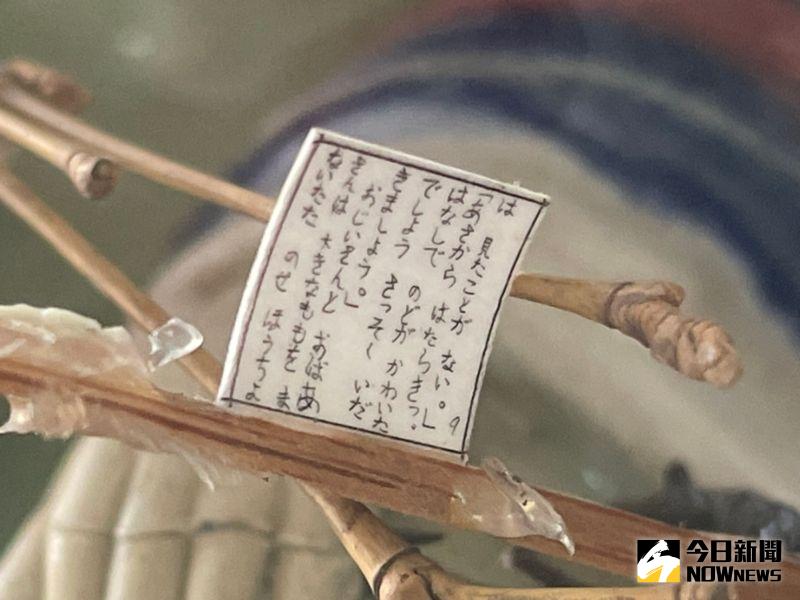 は 見たことが ない。」 9
「あさから はたらきっ
はなしで のどが かわいた
でしよう きっそく いだ
きましょう。」
おじいさんと おばあ
さんは 大きなももを ま
ないたた のせ ほうちよ
今日新聞
NOWNEWS